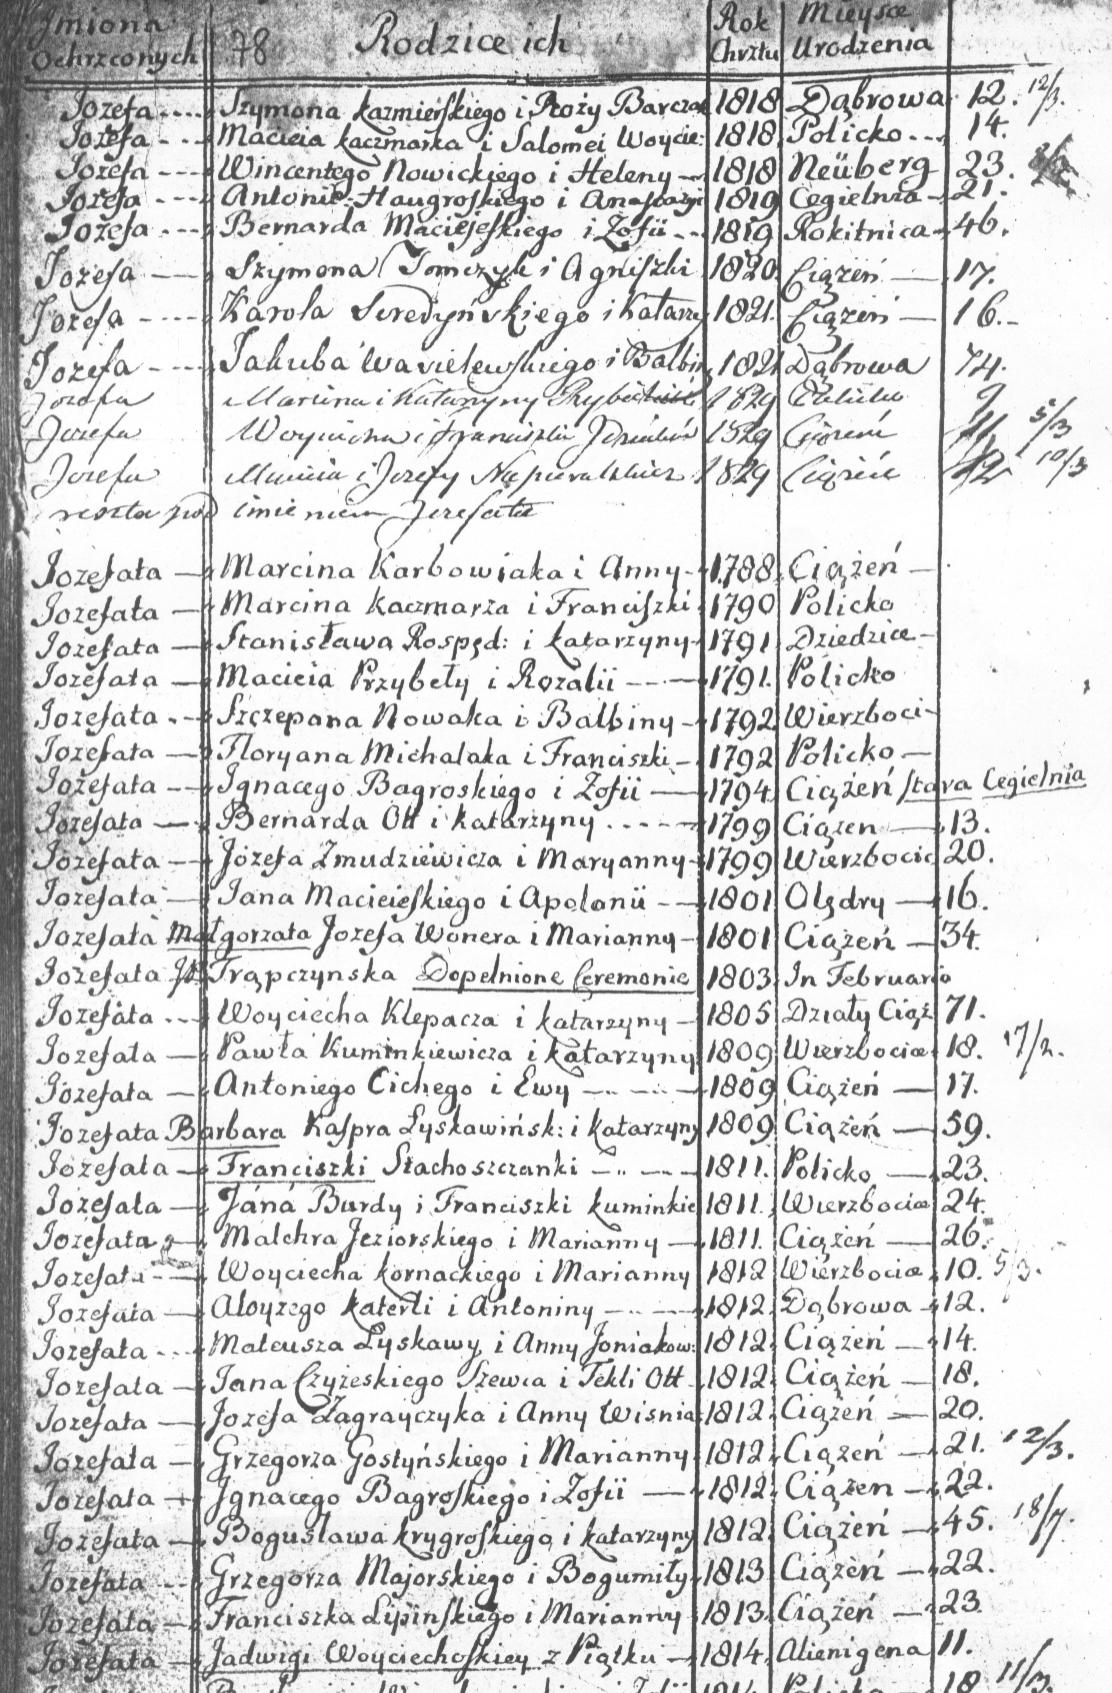 Imiona Ochrzconych 78 Rodzice ich Rok Chrztu Mieysce Urodzenia
Jozefa ---- Szymona kazmierskiego i Roży Barczak 1818 Dąbrowa 12. 12/3.
Jozefa --- Macieia kaczmarka i Salomei Woycie: 1818 Policko --- 14.
Jozefa ---- Wincentego Nowickiego i Heleny -- 1818 Neüberg 23.
Jozefa --- Antonie: Haugroskiego i Anastazyi 1819 Cegielnia - 21.
Jozefa --- Bernarda Maciejeskiego i Zofii --- 1819 Rokitnica - 46.
Jozefa --- Szymona Tomczyk i Agniszki 1820 Ciążeń — 17.
Jozefa ---- Karola Seredyńskiego i Katarzy 1821. Ciążeń — 16.-
Jozefa ---- Jakuba Wavielewskiego i Balbin 1821 Dąbrowa 74.
Jozefa Marcina i Katarzyny 1829 9
Jozefa Woyciecha i Franciszki 1829 Ciążeń 5/3
Jozefa Macieia i Jozefy 1829 Ciążeń 10/3
reszta pod imieniem Jozefata
Jozefata — Marcina Karbowiaka i Anny - 1788 Ciążeń —
Jozefata — Marcina kaczmarza i Franciszki 1790 Policko
Jozefata — Stanisława Rospęd: i katarzyny - 1791 Dziedzice -
Jozefata — Macieia Przybeły i Rozalii --- 1791. Policko
Jozefata --- Szczepana Nowaka i Balbiny - 1792 Wierzboci-
Jozefata — Floryana Michalaka i Franciszki - 1792 Policko —
Jozefata — Ignacego Bagroskiego i Zofii — 1794 Ciążeń stara Cegielnia
Jozefata — Bernarda Ott i katarzyny ---- 1799 Ciązen — 13.
Jozefata -- Józefa Zmudziewicza i Maryanny - 1799 Wierzbocic 20.
Jozefata — Jana Macieieskiego i Apolonii -- 1801 Olędry — 16.
Jozefata Małgorzata Jozefa Wonera i Marianny - 1801 Ciążeń — 34.
Jozefata Trąpczynska Dopełnione Ceremonie 1803 In Februario
Jozefata --- Woyciecha Klepacza i katarzyny — 1805 Działy Ciąż. 71.
Jozefata — Pawła Kuminkiewicza i katarzyny 1809 Wierzbocice 18. 17/2.
Jozefata — Antoniego Cichego i Ewy ---- 1809 Ciążeń — 17.
Jozefata Barbara Kaspra Łyskawińsk: i katarzyny 1809 Ciążeń — 59.
Jozefata — Franciszki Stachoszczanki ---- 1811. Policko — 23.
Jozefata — Jáná Burdy i Franciszki kuminkie 1811. Wierzbocice 24.
Jozefata — Malchra Jeziorskiego i Marianny — 1811. Ciążeń — 26.
Jozefata --- Woyciecha kornackiego i Marianny 1812 Wierzbocice 10. 5/3.
Jozefata — Aloyzego katerli i Antoniny ---- 1812. Dąbrowa - 12.
Jozefata --- Mateusza Łyskawy i Anny Joniakow: 1812. Ciążeń — 14.
Jozefata — Jana Czyżeskiego Szewca i Tekli Ott - 1812. Ciążeń — 18.
Jozefata — Jozefa Zagrayczyka i Anny Wisnia: 1812. Ciążeń — 20.
Jozefata — Grzegorza Gostyńskiego i Marianny 1812. Ciążen — 21. 12/3.
Jozefata — Ignacego Bagroskiego i Zofii — 1812. Ciążen — 22.
Jozefata — Bogusława krygroskiego i katarzyny 1812. Ciążeń — 45. 18/7.
Jozefata --- Grzegorza Majorskiego i Bogumiły - 1813. Ciążeń — 22.
Jozefata — Franciszka Lipinskiego i Marianny - 1813. Ciążeń — 23.
Jozefata — Jadwigi Woyciechoskiey z Piątku — 1814. Alienigena 11.
18 11/3.